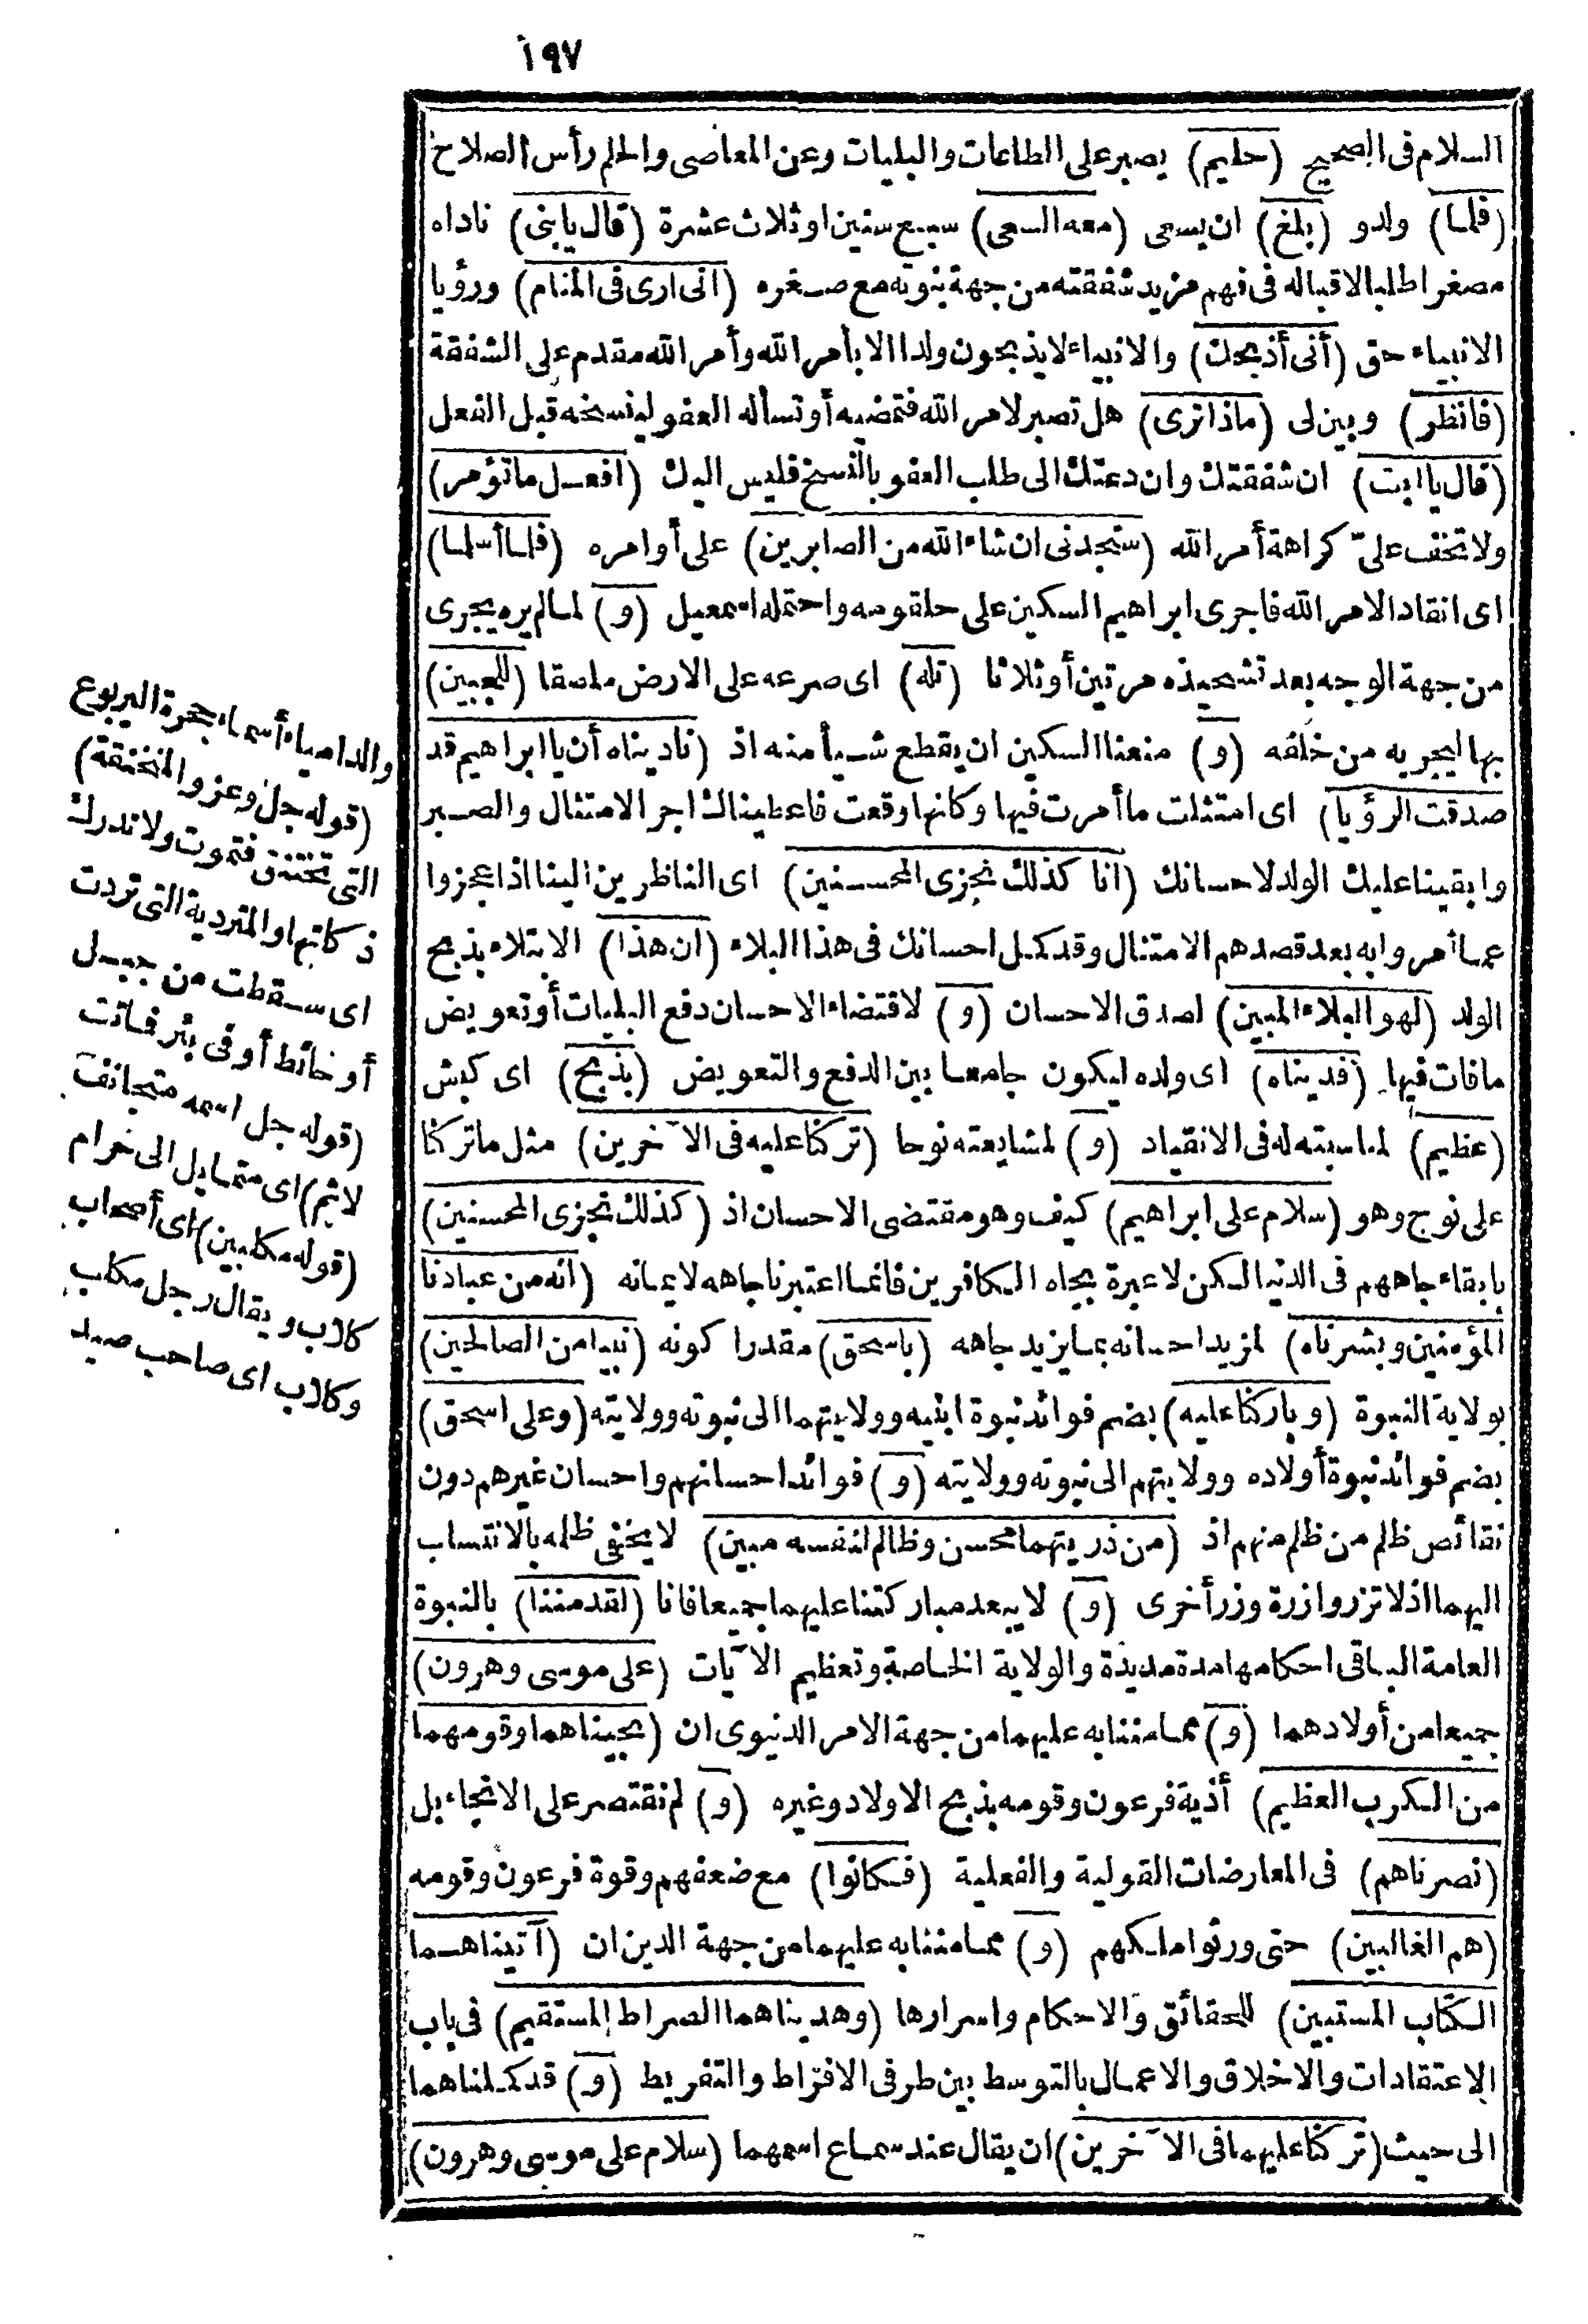 ١٩٧
السلام فى الصحيح (حليم) يصبر على الطاعات والبليات وعن المعاصى والحلم رأس الصلاح
(فلما) ولد و (بلغ) ان يسعى (معه السعى) سبع سنين او ثلاث عشرة (قال يابنى) ناداه
مصغرا طلبا لاقباله فى فهم مزيد شفقته من جهة بنوته مع صغره (انى ارى فى المنام) ورؤيا
الانبياء حق (أنى أذبحك) والانبياء لا يذبحون ولدا الا بأمر الله وأمر الله مقدم على الشفقة
(فانظر) وبين لى (ماذا ترى) هل تصبر لامر الله فتمضيه أو تسأله العفو لينسخه قبل الفعل
(قال يا ابت) ان شفقتك وان دعتك الى طلب العفو بالنسخ فليس اليك (افعل ما تؤمر)
ولا تخف علىّ كراهة أمر الله (ستجدنى ان شاء الله من الصابرين) على أوامره (فلما أسلما)
اى انقاد الامر الله فاجرى ابراهيم السكين على حلقومه واحتمله اسمعيل (و) لما لم يره يجرى
من جهة الوجه بعد تشحيذه مرتين أو ثلاثا (تله) اى صرعه على الارض ملصقا (للجبين)
بها ليجريه من خلفه (و) منعنا السكين ان يقطع شيأ منه اذ (ناديناه أن يا ابراهيم قد
صدقت الرؤيا) اى امتثلت ما أمرت فيها وكانها وقعت فاعطيناك اجر الامتثال والصبر
وابقينا عليك الولد لاحسانك (انا كذلك نجزى المحسنين) اى الناظرين الينا اذا عجزوا
عما أمروا به بعد قصدهم الامتثال وقد كمل احسانك فى هذا البلاء (ان هذا) الابتلاء بذبح
الولد (لهو البلاء المبين) لصدق الاحسان (و) لاقتضاء الاحسان دفع البليات أو تعويض
مافات فيها (فديناه) اى ولده ليكون جامعا بين الدفع والتعويض (بذبح) اى كبش
(عظيم) لمناسبته له فى الانقياد (و) لمشايعته نوحا (تركنا عليه فى الآخرين) مثل ما تركنا
على نوح وهو (سلام على ابراهيم) كيف وهو مقتضى الاحسان اذ (كذلك نجزى المحسنين)
بابقاء جاههم فى الدنيا لكن لا عبرة بجاه الكافرين فانما اعتبرنا جاهه لايمانه (انه من عبادنا
المؤمنين وبشرناه) لمزيد احسانه بما يزيد جاهه (باسحق) مقدرا كونه (نبيا من الصالحين)
بولاية النبوة (وباركنا عليه) بضم فوائد نبوة ابنيه وولايتهما الى نبوته وولايته (وعلى اسحق)
بضم فوائد نبوة أولاده وولايتهم الى نبوته وولايته (و) فوائد احسانهم واحسان غيرهم دون
نقائص ظلم من ظلم منهم اذ (من ذريتهما محسن وظالم لنفسه مبين) لا يخفى ظلمه بالانتساب
اليهما اذ لا تزر وازرة وزر أخرى (و) لا يبعد مباركتنا عليهما جميعا فانا (لقد مننا) بالنبوة
العامة الباقى احكامها مدة مديدة والولاية الخاصة وتعظيم الآيات (على موسى وهرون)
جميعا من أولادهما (و) مما مننا به عليهما من جهة الامر الدنيوى ان (نجيناهما وقومهما
من الكرب العظيم) أذية فرعون وقومه بذبح الاولاد وغيره (و) لم نقتصر على الانجاء بل
(نصرناهم) فى المعارضات القولية والفعلية (فكانوا) مع ضعفهم وقوة فرعون وقومه
(هم الغالبين) حتى ورثوا ملكهم (و) مما مننا به عليهما من جهة الدين ان (آتيناهما
الكتاب المستبين) للحقائق والاحكام واسرارها (وهديناهما الصراط المستقيم) فى باب
الاعتقادات والاخلاق والاعمال بالتوسط بين طرفى الافراط والتفريط (و) قد كملناهما
الى حيث (تركنا عليهما فى الآخرين) ان يقال عند سماع اسمهما (سلام على موسى وهرون)
والدامياء أسماء جحرة اليربوع
(قوله جل وعز والمنخنقة)
التى تختنق فتموت ولا ندرك
ذكاتها والمتردية التى تردت
اى سقطت من جبل
أو حائط أو فى بئر فماتت
(قوله جل اسمه متجانف
لاثم) اى متمايل الى حرام
(قوله مكلبين) اى أصحاب
كلاب ويقال رجل مكلب
وكلاب اى صاحب صيد